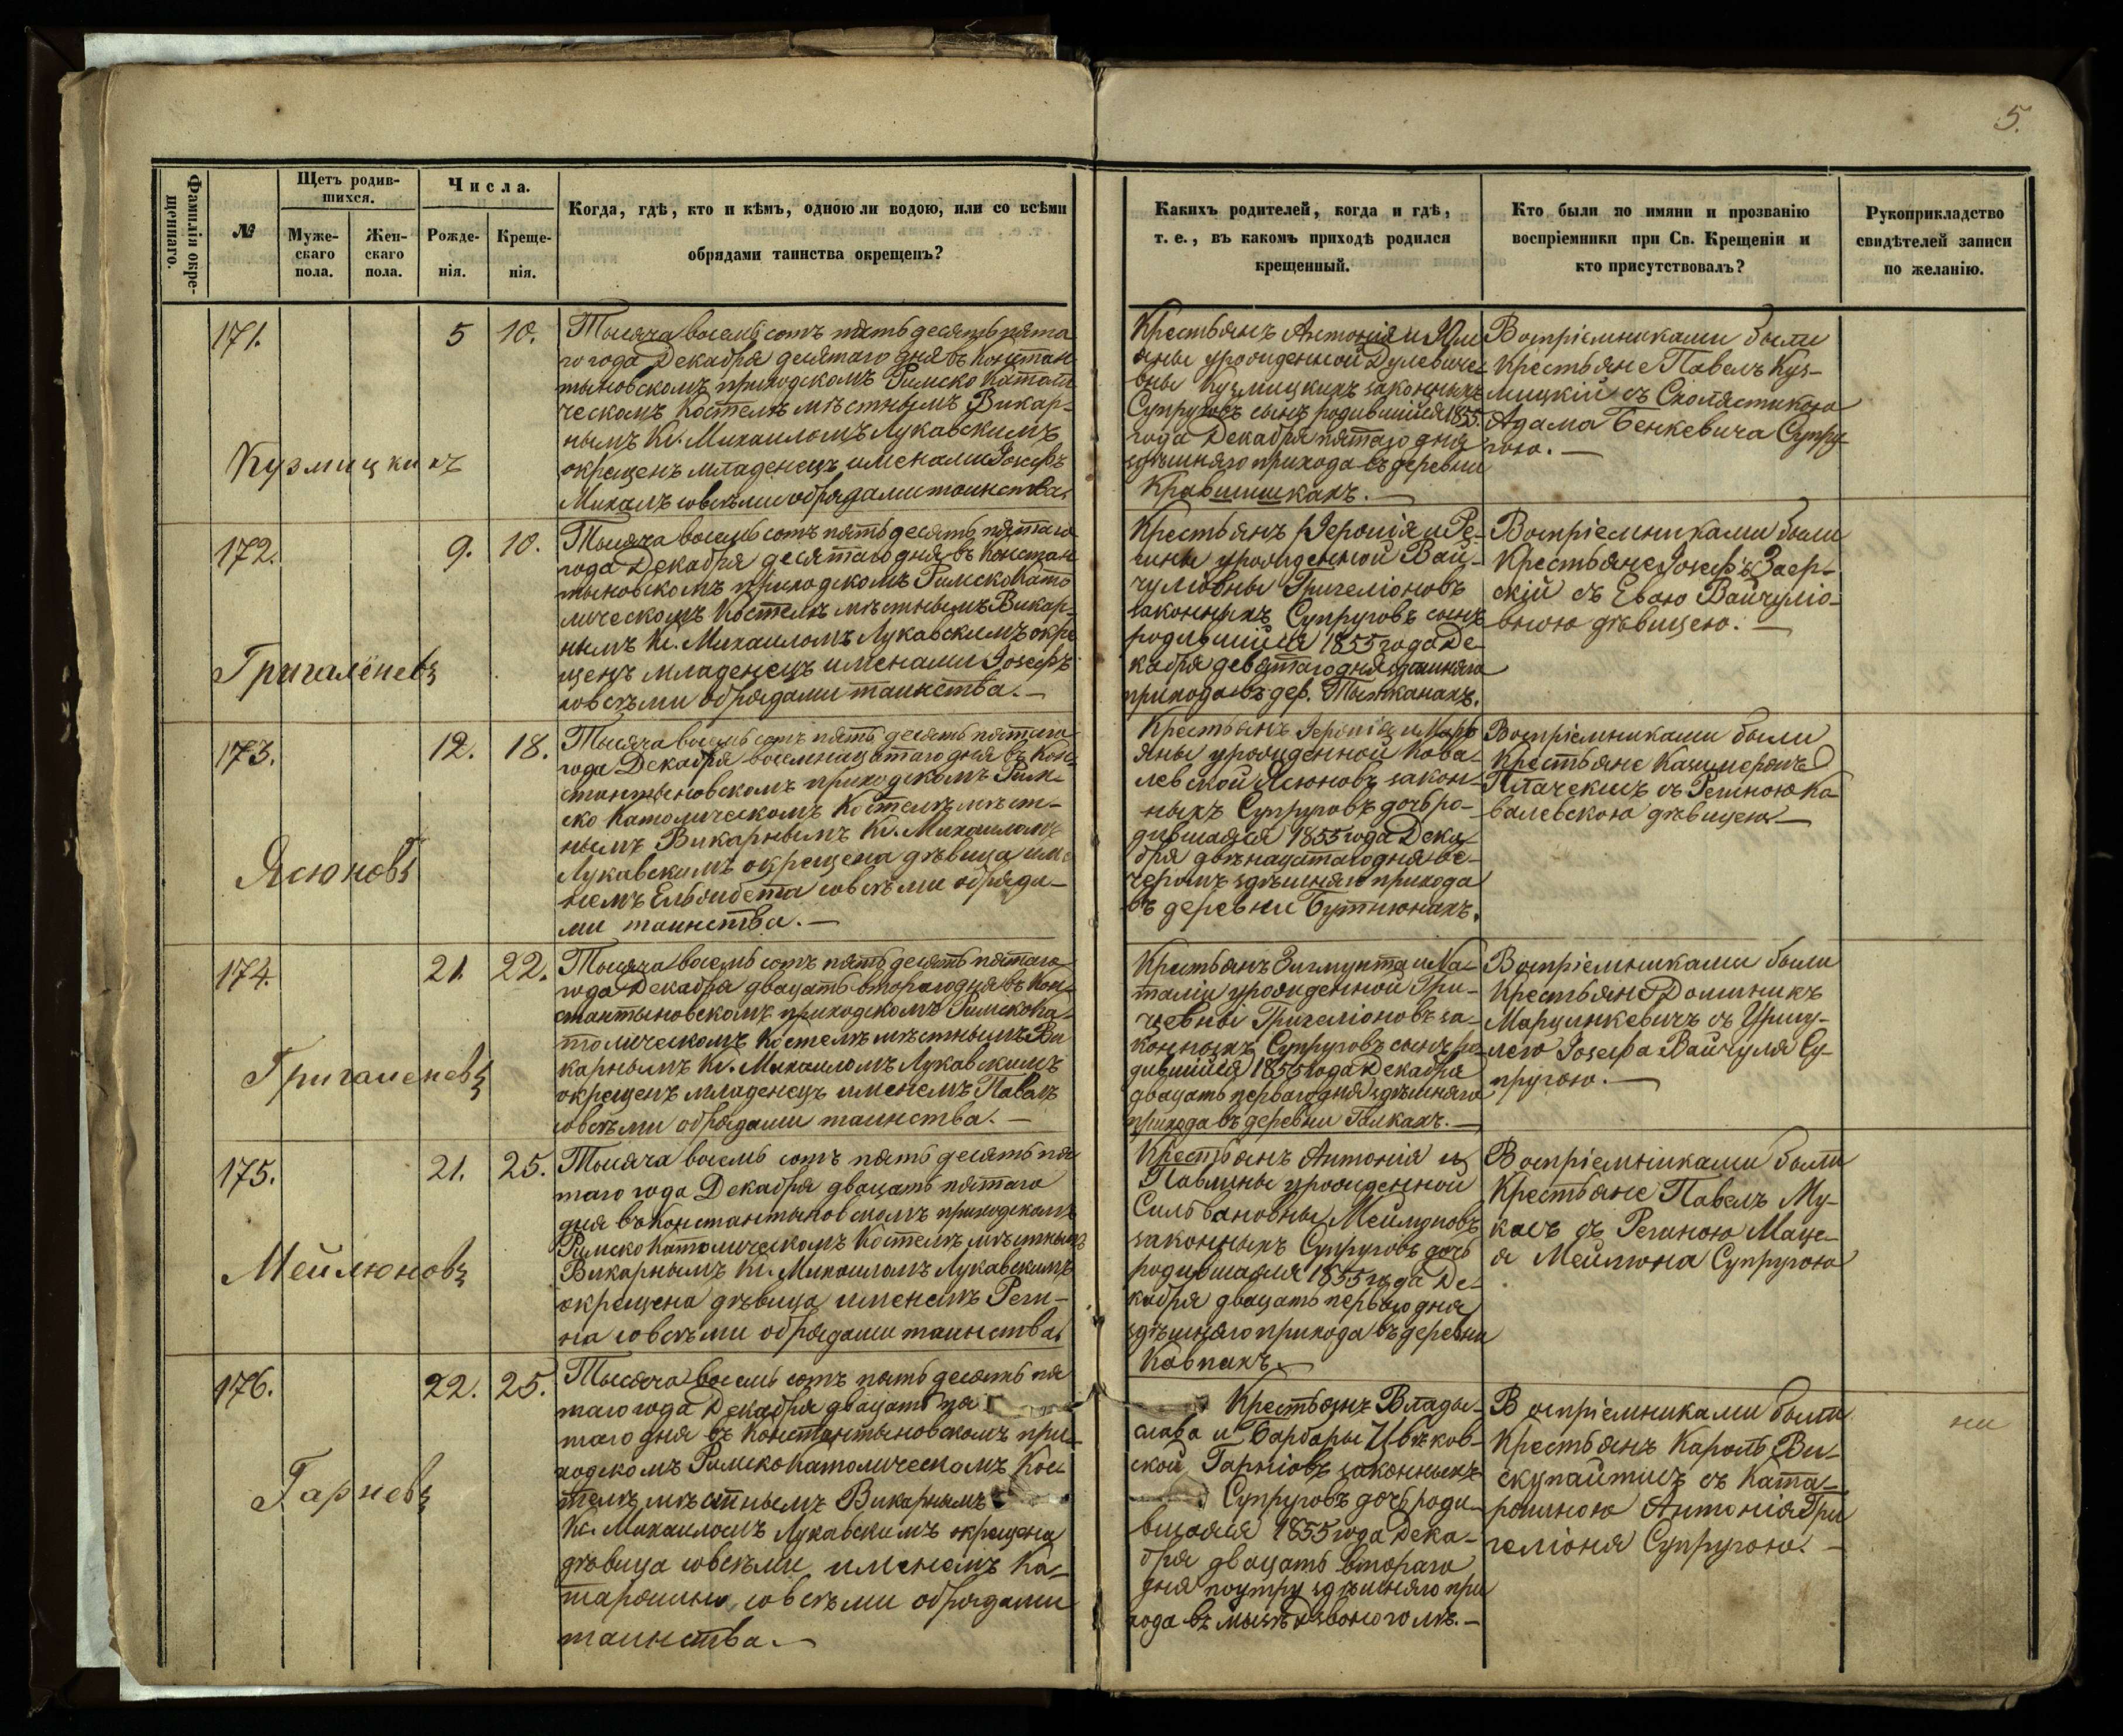 5.
Фамиліи окре-
щеннаго.
№
Щетъ родив-
шихся.
Муже-
скаго
пола.
Жен-
скаго
пола.
Числа.
Рожде-
нія.
Креще-
нія.
Когда, гдѣ, кто и кѣмъ, одною ли водою, или со всѣми
обрядами таинства окрещенъ?
Какихъ родителей, когда и гдѣ,
т. е., въ какомъ приходѣ родился
крещенный.
Кто были по имяни и прозванію
воспріемники при Св. Крещеніи и
кто присутствовалъ?
Рукоприкладство
свидѣтелей записи
по желанію.
171.
Кузмицкихъ
5
10.
Тысяча восемь сотъ пять десять пята
го года Декабря десятаго дня въ Констан
тыновскомъ приходскомъ Римско Католи
ческомъ Костелѣ мѣстнымъ Викар-
нымъ Кс. Михаиломъ Лукавскимъ
окрещенъ младенецъ именами Іосефъ
Михалъ совсѣми обрядами таинства.
Крестьянъ Антонія и Юли
яны урожденной Дулевиче-
вны Кузмицкихъ законныхъ
Супруговъ сынъ родившійся 1855.
года Декабря пятаго дня
здѣшняго прихода въ деревни
Кравшишкахъ.
Воспріемниками были
Крестьяне Павелъ Куз-
мицкій съ Схолястикою
Адама Бенкевича Супру-
гою.
172.
Григалёневъ
9.
10.
Тысяча восемь сотъ пять десять пятаго
года Декабря десятаго дня въ Констан
тыновскомъ приходскомъ Римско Като
лическомъ Костелѣ мѣстнымъ Викар-
нымъ Кс. Михаиломъ Лукавскимъ окре
щенъ младенецъ именами Іосефъ
совсѣми обрядами таинства.
Крестьянъ Іеронія и Ре-
гины урожденной Вай-
чуліовны Григеліоновъ
законныхъ Супруговъ сынъ
родившійся 1855 года Де-
кабря девятаго дня здѣшняго
прихода въ дер.
Воспріемниками были
Крестьяне Іосефъ Заер-
скій съ Евою Вайчуліо-
вною дѣвицею.
173.
Ясюновъ
12.
18.
Тысяча восемь сотъ пять десять пятаго
года Декабря восемнацатаго дня въ Кон-
стантыновскомъ приходскомъ Рим-
ско Католическомъ Костелѣ мѣст-
нымъ Викарнымъ Кс. Михаиломъ
Лукавскимъ окрещена дѣвица име
немъ Ельзбета совсѣми обряда-
ми таинства.
Крестьянъ Іеронія и Марі
яны урожденной Кова-
левской Ясюновъ закон-
ныхъ Супруговъ дочь ро-
дившаяся 1855 года Дека-
бря двѣнацатаго дня ве-
черомъ здѣшняго прихода
въ деревни Бутнюнахъ.
Воспріемниками были
Крестьяне Казимеромъ
съ Региною Ко-
валевскою дѣвицею
174.
Григаленевъ
21.
22.
Тысяча восемь сотъ пять десять пятаго
года Декабря двацать втораго дня въ Кон-
стантыновскомъ приходскомъ Римско Ка-
толическомъ Костелѣ мѣстнымъ Ви
карнымъ Кс. Михаиломъ Лукавскимъ
окрещенъ младенецъ именемъ Павелъ
совсѣми обрядами таинства.
Крестьянъ Зигмунта и На-
таліи урожденной Гри-
цевны Григеліоновъ за-
конныхъ Супруговъ сынъ ро
дившійся 1855 года Декабря
двацать перваго дня здѣшняго
прихода въ деревни Галкахъ.
Воспріемниками были
Крестьяне Доминикъ
Марцинкевичъ съ Уршу-
лею Іосефа Вайчуля Су-
пругою.
175.
Мейлюновъ
21.
25.
Тысяча восемь сотъ пять десять пя
таго года Декабря двацать пятаго
дня въ Константыновскомъ приходскомъ
Римско Католическомъ Костелѣ мѣстнымъ
Викарнымъ Кс. Михаиломъ Лукавскимъ
окрещена дѣвица именемъ Реги-
на совсѣми обрядами таинства.
Крестьянъ Антонія и
Павлины урожденной
Сильвановны Мейлуновъ
законныхъ Супруговъ дочь
родившаяся 1855 года Де-
кабря двацать перваго дня
здѣшняго прихода въ деревни
Кавпахъ.
Воспріемниками были
Крестьяне Павелъ Му-
касъ съ Региною Маце-
я Мейлюна Супругою
176.
Гарневъ
22.
25.
Тысяча восемь сотъ пять десять пя
таго года Декабря двацать пя
таго дня въ Константыновскомъ при-
ходскомъ Римско Католическомъ Кос
телѣ мѣстнымъ Викарнымъ
Кс. Михаиломъ Лукавскимъ окрещена
дѣвица совсѣми именемъ Ка-
тарошина, совсѣми обрядами
таинства.
Крестьянъ Влады-
слава и Барбары Цвѣков-
ской Гарніовъ законныхъ
Супруговъ дочь роди-
вшаяся 1855 года Дека-
бря двацать втораго
дня поутру здѣшняго при
хода въ мызѣ
Воспріемниками были
Крестьянъ Кароль Ви-
скупайтисъ съ Ката-
рошиною Антонія Гри
геліоня Супругою.